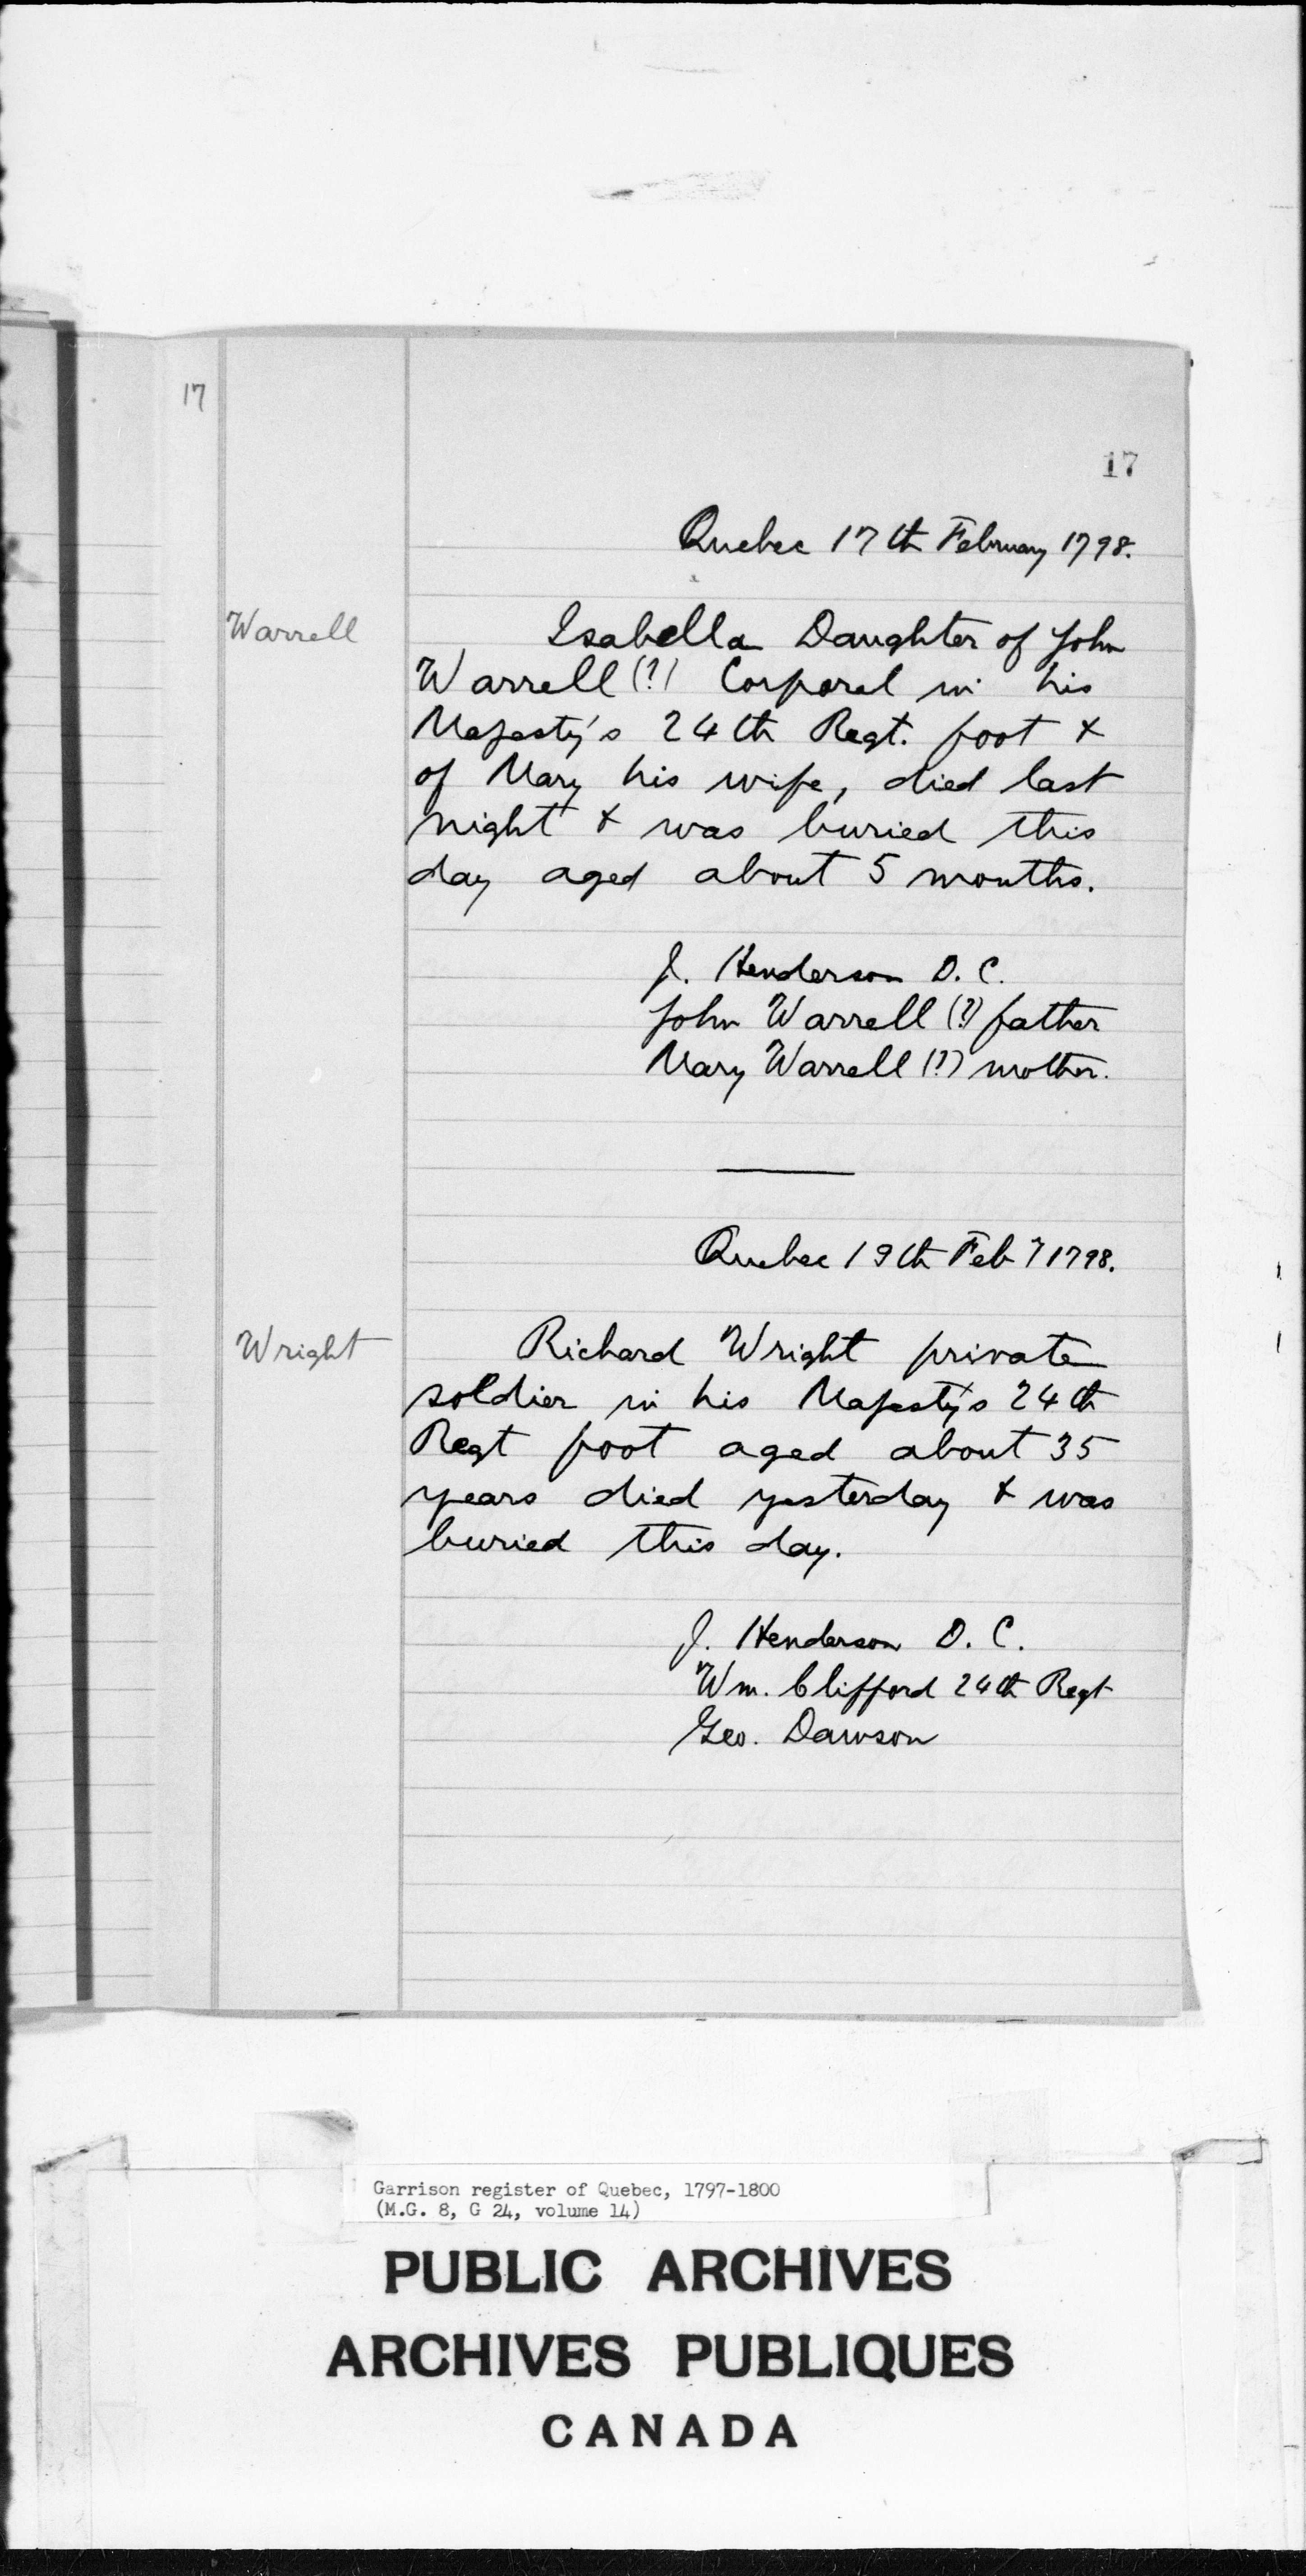 17
17
Quebec 17th February 1798.
Warrell
Isabella Daughter of John
Warrell (?) Corporal in his
Majesty's 24th Regt. foot &
of Mary his wife, died last
night & was buried this
day aged about 5 months.
J. Henderson D.C.
John Warrell (?) father
Mary Warrell (?) mother.
Quebec 19th Feby 1798.
Wright
Richard Wright private
soldier in his Majesty's 24th
Regt foot aged about 35
years died yesterday & was
buried this day.
J. Henderson D.C.
Wm. Clifford 24th Regt
Geo. Dawson
Garrison register of Quebec, 1797-1800
(M.G. 8, G 24, volume 14)
PUBLIC ARCHIVES
ARCHIVES PUBLIQUES
CANADA